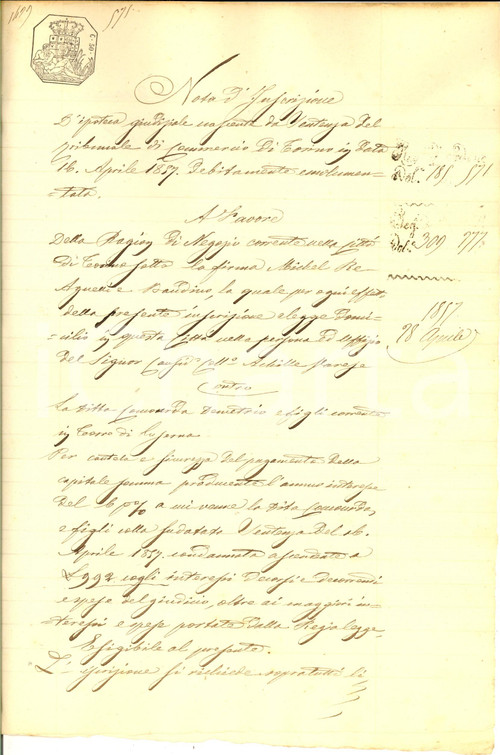 1429
571.
Nota d'Inscrizione
D'ipoteca giudiziale nascente da Sentenza del
tribunale di Commercio Di Torino in Data
16. Aprile 1857. Debitamente emolumen-
tata.
Vol. 185 571
A Favore
Della Ragion Di Negozio corrente nella Città
Di Torino sotto la firma Michel Re
Agnelli e Baudino, la quale per ogni effetto
della presente inscrizione elegge Domi-
cilio in questa Città nella persona ed Uffizio
Del Signor Achille
Reg.
Vol. 309 277
1857
28 Aprile
Contro
La Ditta Demetrio e figli corrente
in Torre di Luserna
Per cautela e sicurezza Del pagamento Della
capitale somma producente l'annuo interesse
Del 6 p% a cui venne la Ditta
e figli colla Sentenza Del 16.
Aprile 1857. condannata ascendente a
L 992 cogli interessi Decorsi e decorrendi
e spese del giudicio, oltre ai maggiori in-
teressi e spese portate Dalla Regia legge
Esigibile al presente.
L'iscrizione si richiede sopratutti li